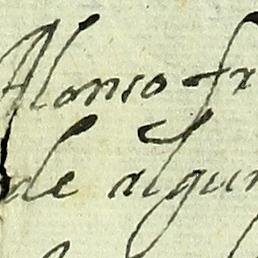 Alonso fr
de algun